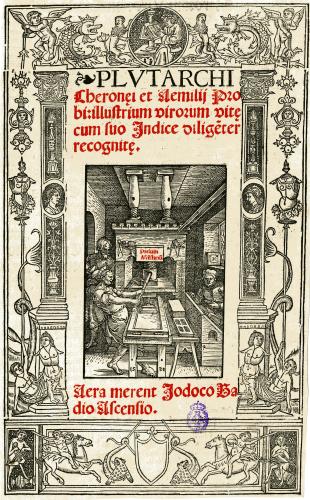 PLVTARCHI
Cheronęi et Aemilij Pro
bi: illustrium virorum vitę
cum suo Indice diligẽter
recognitę.
Prelum
Ascēsianū
Aera merent Jodoco Ba
dio Ascensio.